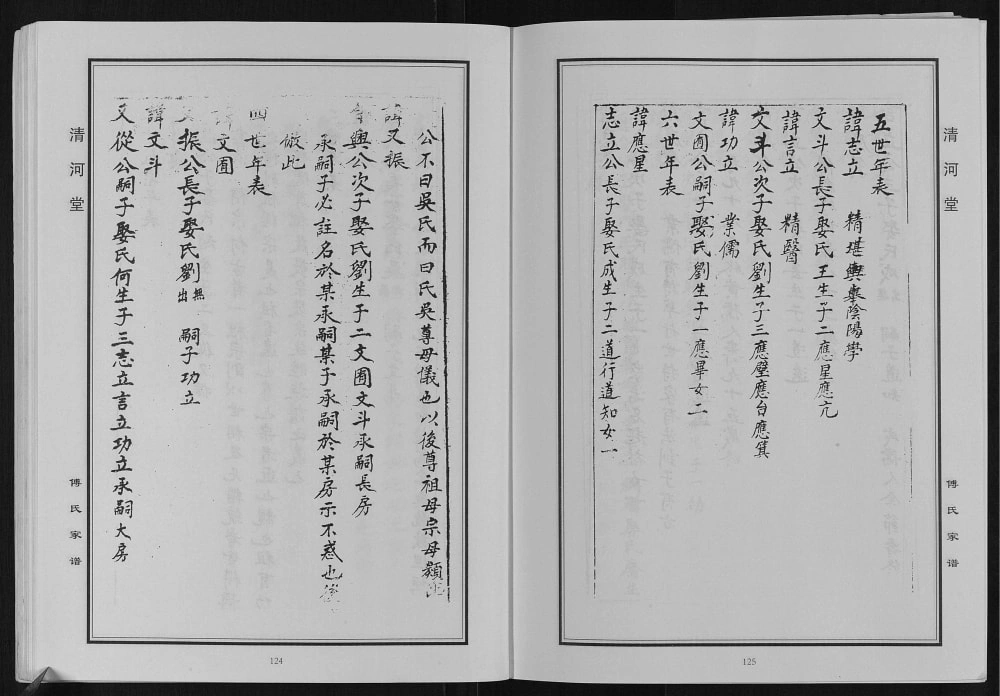 清河堂
傅氏家谱
公不曰吳氏而曰氏吳尊母儀也以後尊祖母宗母類
諱又振
興公次子娶氏劉生子二文圃文斗承嗣長房
承嗣子必註名於某承嗣某子承嗣於某房示不惑也後
倣此
四世年表
諱文圃
又振公長子娶氏劉無出 嗣子功立
諱文斗
又從公嗣子娶氏何生子三志立言立功立承嗣大房
124
清河堂
傅氏家谱
五世年表
諱志立 精堪輿業陰陽學
文斗公長子娶氏王生子二應星應亢
諱言立 精醫
文斗公次子娶氏劉生子三應壁應台應箕
諱功立 業儒
文圃公嗣子娶氏劉生子一應畢女二
六世年表
諱應星
志立公長子娶氏成生子二道行道知女一
125